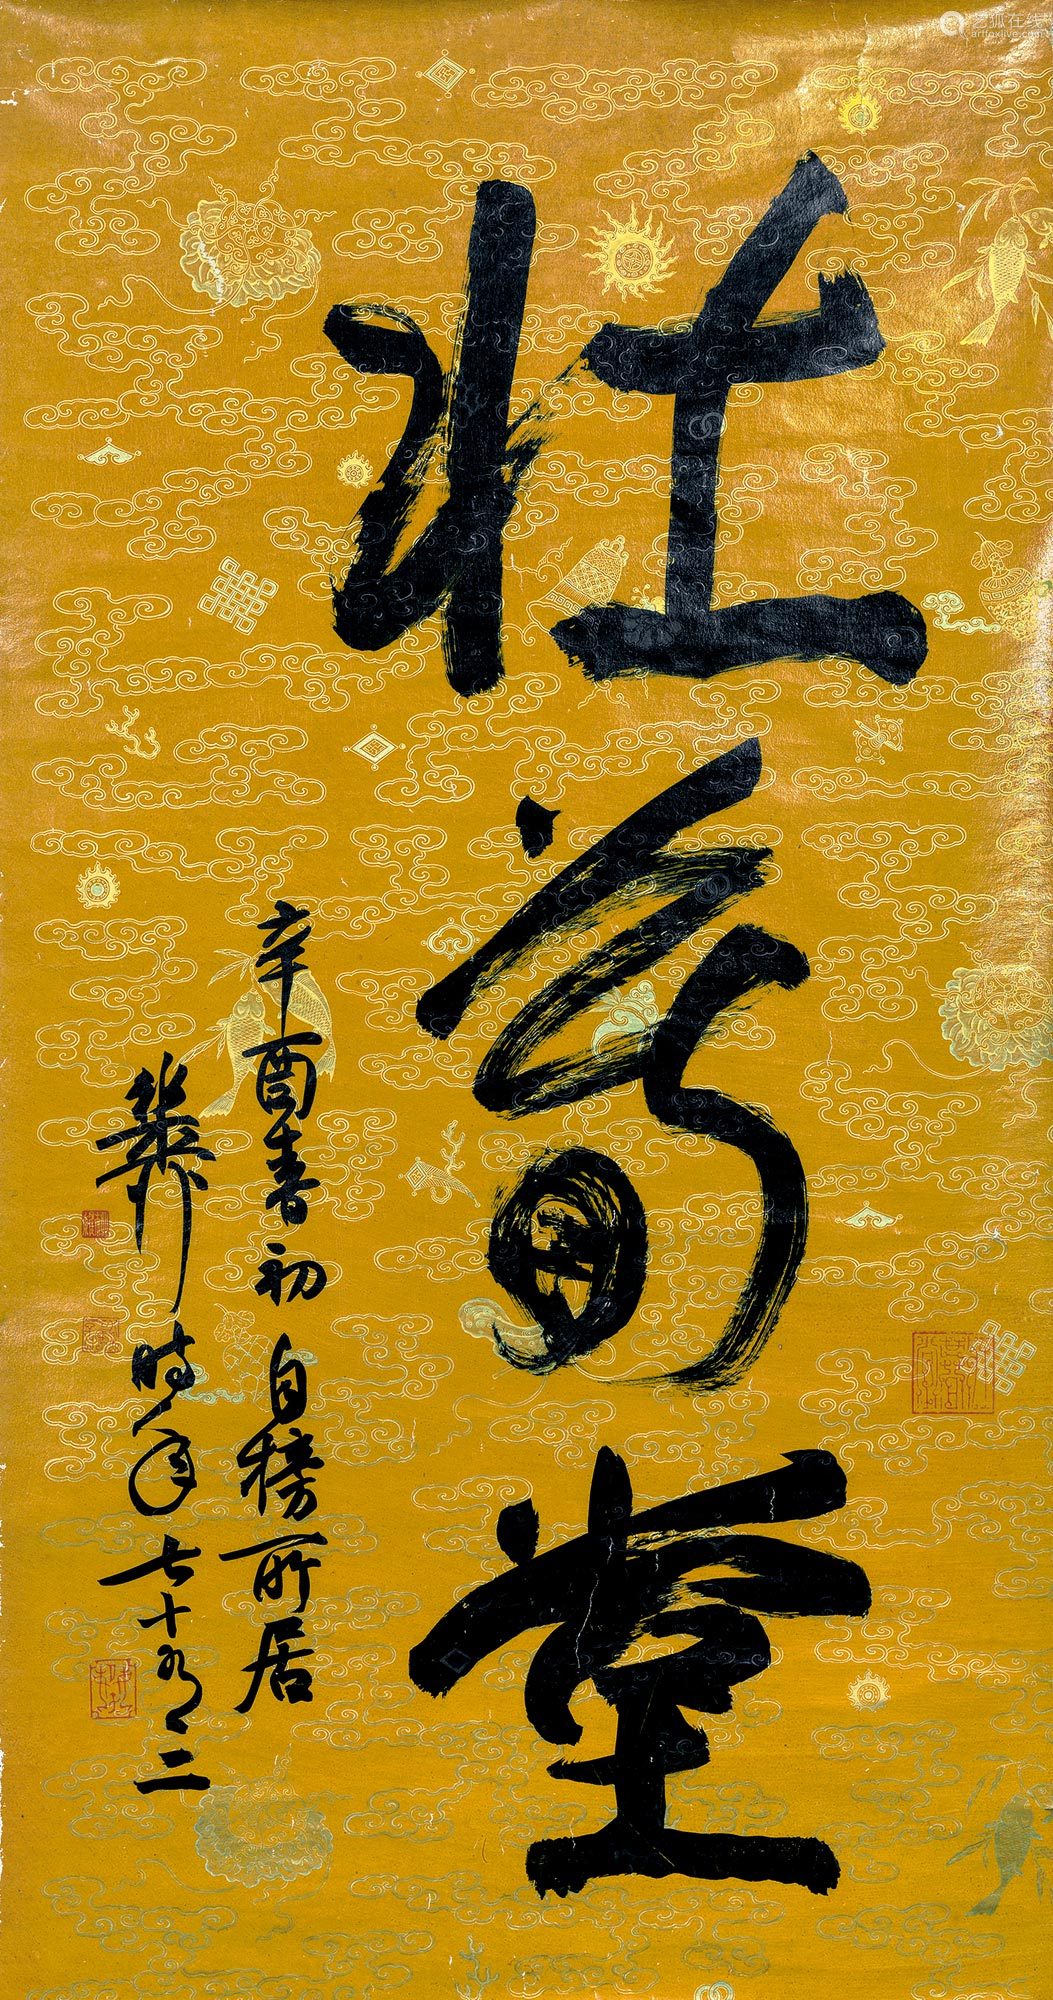 艺狐在线
artfoxlive.com
壮暮堂
辛酉春初自榜所居
稚柳時年七十有二